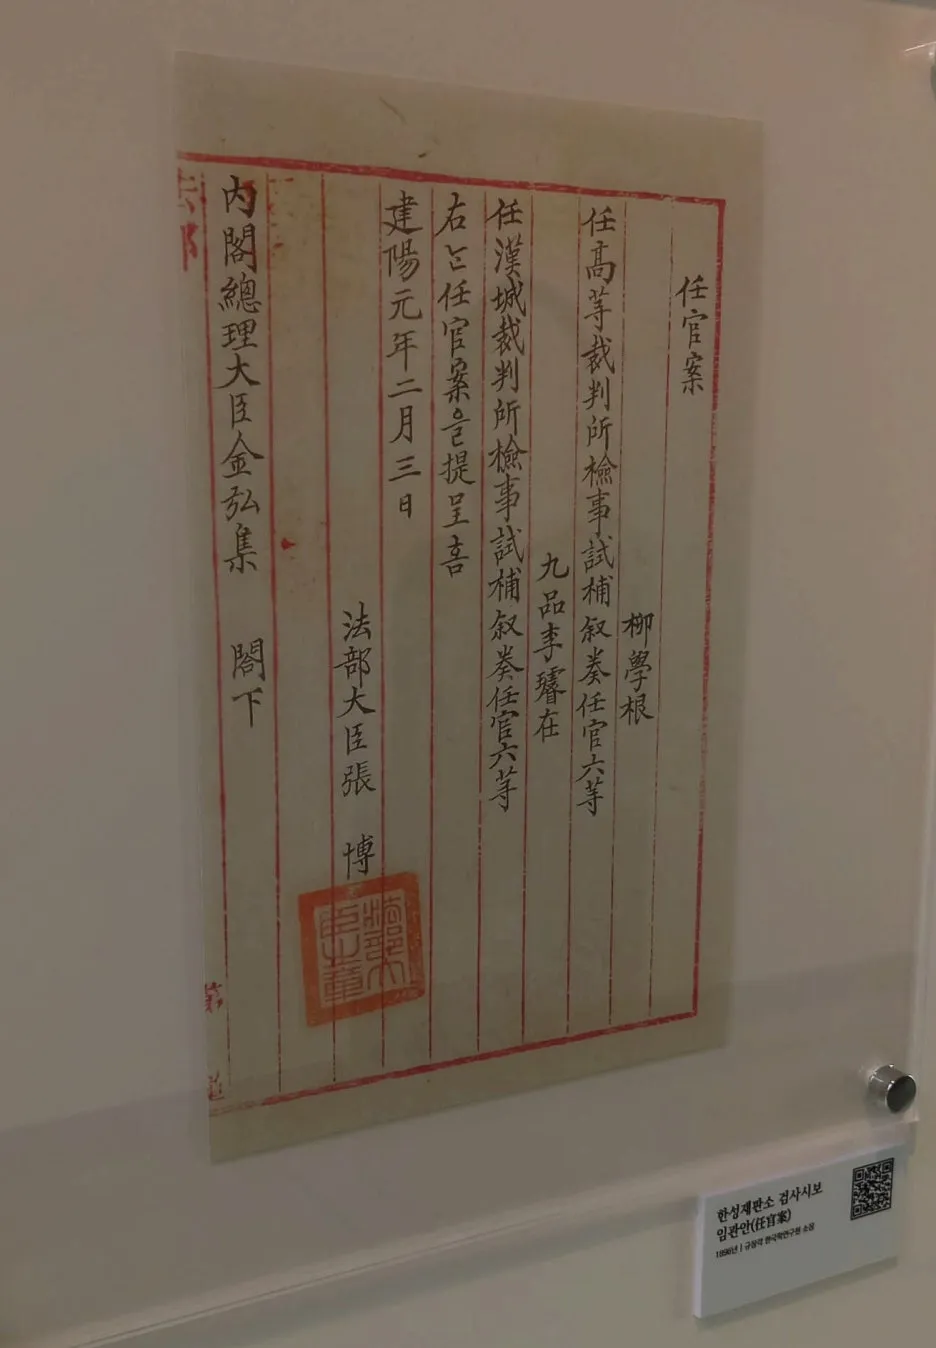 任官案
柳學根
任高等裁判所檢事試補叙奏任官六等
九品李璿在
任漢城裁判所檢事試補叙奏任官六等
右ᄂᆞᆫ任官案을提呈홈
建陽元年二月三日
法部大臣張 博
法部大臣之章
內閣總理大臣金弘集 閣下
法部
第
한성재판소 검사시보
임관안(任官案)
1896년 | 규장각 한국학연구원 소장